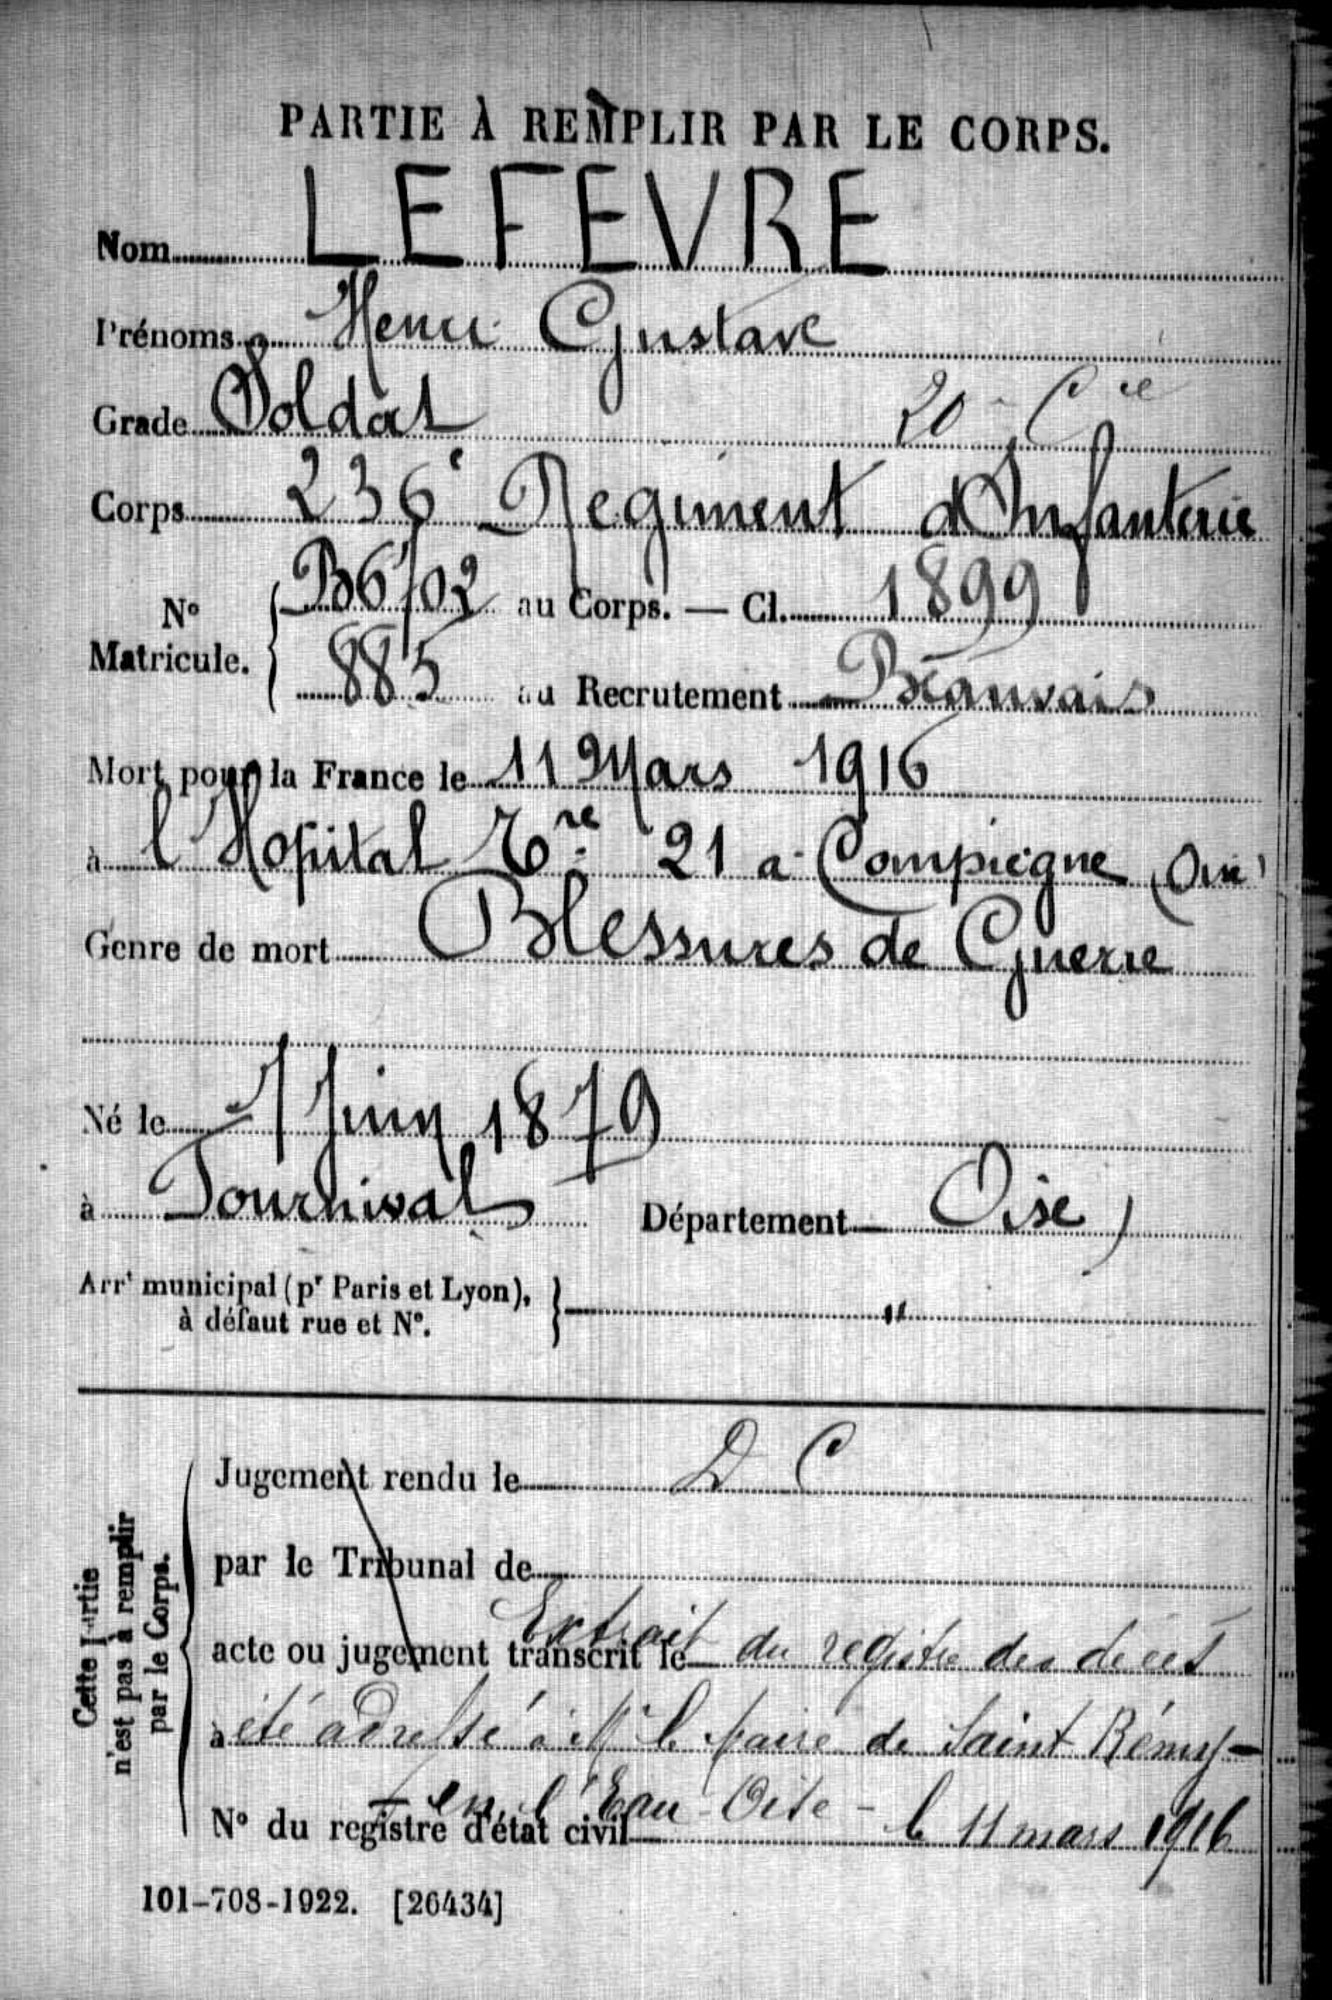 PARTIE À REMPLIR PAR LE CORPS.
Nom LEFEVRE
Prénoms Henri Gustave
Grade Soldat 20e Cie
Corps 236e Régiment d'Infanterie
N° Matricule. { B6702 au Corps. — Cl. 1899
885 au Recrutement Beauvais
Mort pour la France le 11 Mars 1916
à l'Hopital Tre 21 a Compiègne (Oise)
Genre de mort Blessures de Guerre
Né le 7 Juin 1879
à Fournival Département Oise)
Arrt municipal (pr Paris et Lyon),
à défaut rue et N°. } "
Cette Partie n'est pas à remplir par le Corps.
Jugement rendu le D C
par le Tribunal de
acte ou jugement transcrit le Extrait du registre des décès
à été adressé à Mr le Maire de Saint Rémy-
- en l'Eau - Oise - le 11 mars 1916
N° du registre d'état civil
101-708-1922. [26434]